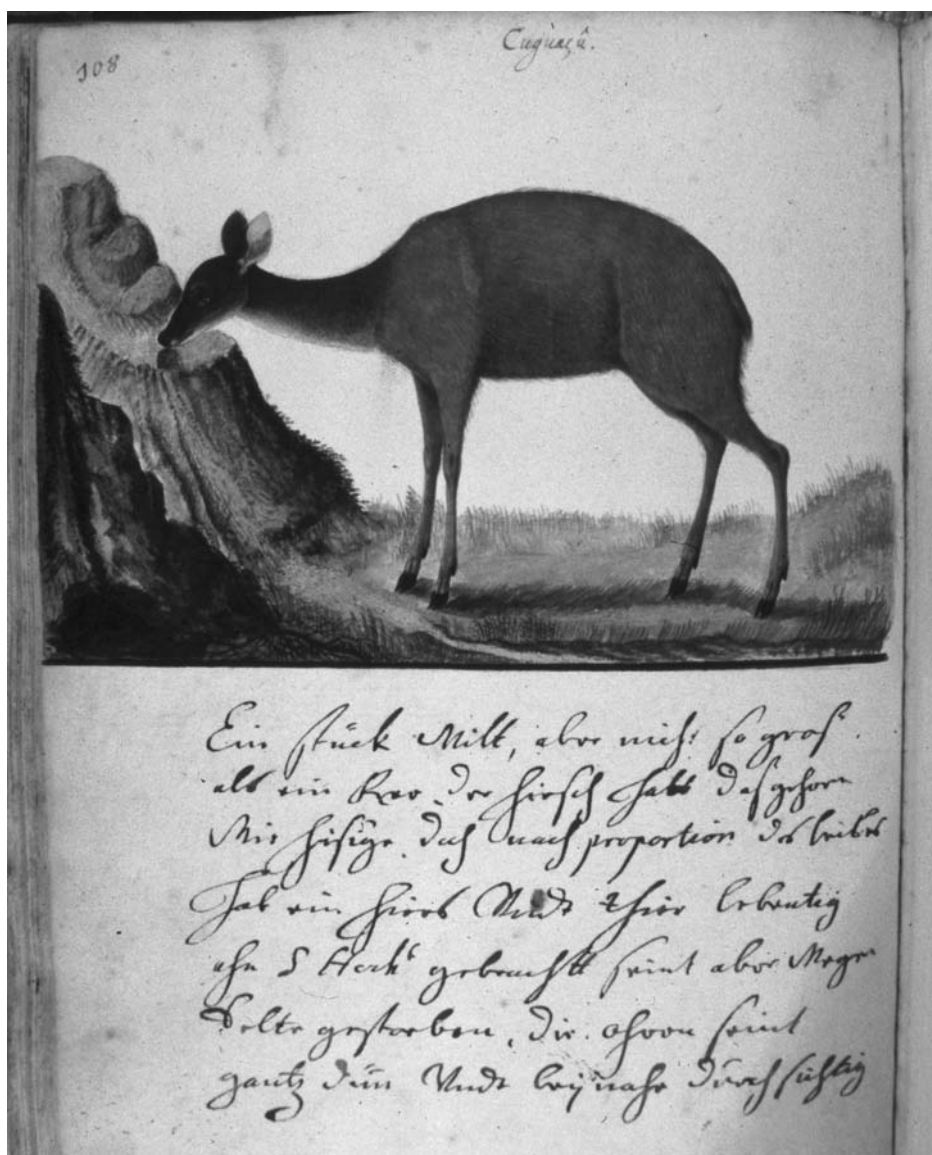 108
Cuguaçû.
Ein stück Wilt, aber nicht so groß
alß ein Ree, der hirsch hatt daß gehorn
Wie hisige, doch nach proportion des leibes
hab ein hirs Undt thier lebentig
ahn S Hech gebracht seint aber Wegen
Kelte gestorben, die ohren seint
gantz dün Undt beÿ nahe durchsichtig